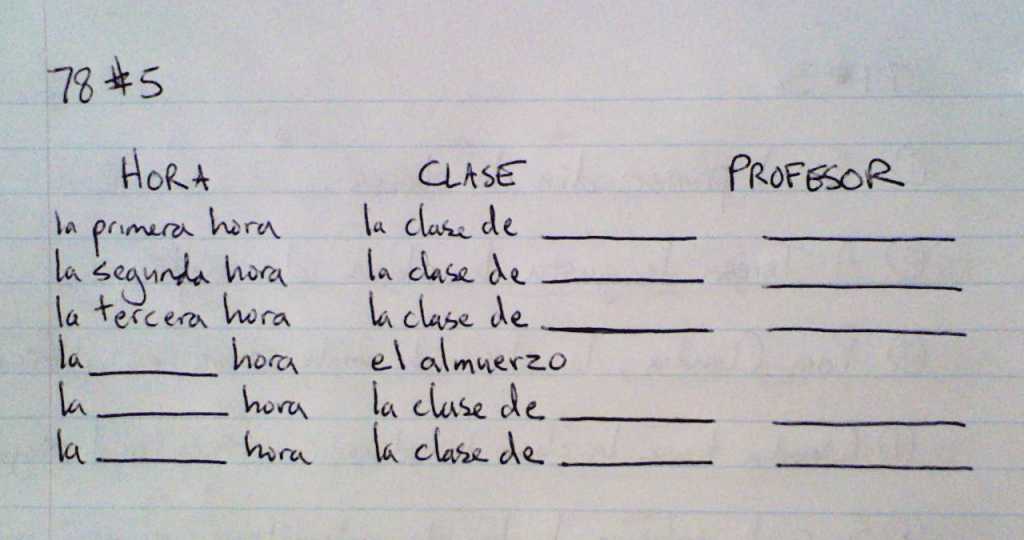 78 #5
HORA CLASE PROFESOR
la primera hora la clase de ________ ________
la segunda hora la clase de ________ ________
la tercera hora la clase de ________ ________
la ________ hora el almuerzo
la ________ hora la clase de ________ ________
la ________ hora la clase de ________ ________